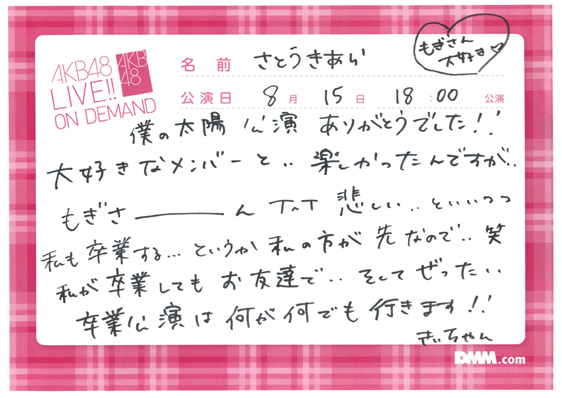 AKB48
LIVE!!
ON DEMAND
AKB
48
名前 さとうきあら
もぎさん
大好き♡
公演日 8月 15日 18:00 公演
僕の太陽公演 ありがとうでした!!
大好きなメンバーと.. 楽しかったんですが..
もぎさ――――ん T^T 悲しい.. といいつつ
私も卒業する... というか 私の方が先なので.. 笑
私が卒業しても お友達で.. そしてぜったい
卒業公演は何が何でも行きます!!
きぃちゃん
DMM.com